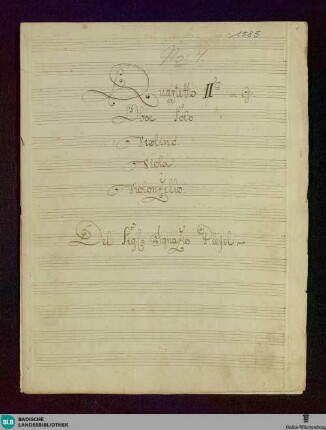 1585
No. 7.
Quartetto II do in G.
Oboe Solo
Violino
Viola
Violonzello
Del Sigl. Ignazio Pleyel
BLB
BADISCHE
LANDESBIBLIOTHEK
Baden-Württemberg